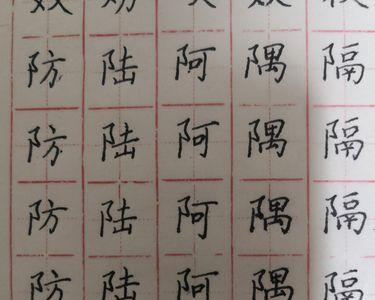 防 陆 阿 隅 隔
防 陆 阿 隅 隔
防 陆 阿 隅 隔
防 陆 阿 隅 隔